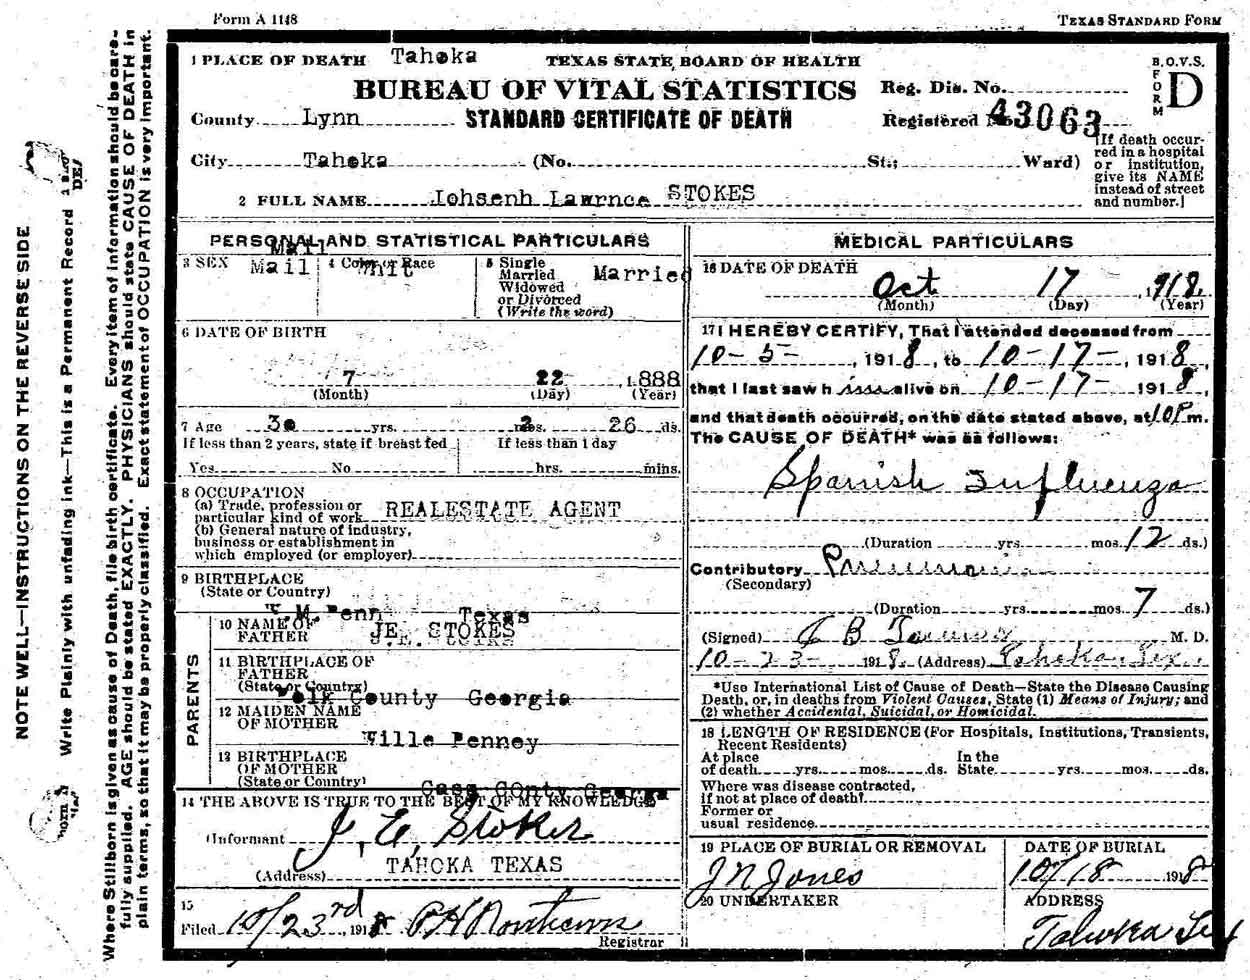 Form A 1148
TEXAS STANDARD FORM
1 PLACE OF DEATH Tahoka
TEXAS STATE BOARD OF HEALTH
BUREAU OF VITAL STATISTICS
STANDARD CERTIFICATE OF DEATH
B.O.V.S.
FORM D
Reg. Dis. No.
Registered No. 43063
County Lynn
City Tahoka (No. St.; Ward)
[If death occur-
red in a hospital
or institution,
give its NAME
instead of street
and number.]
2 FULL NAME Johsenh Lawrnce STOKES
PERSONAL AND STATISTICAL PARTICULARS
3 SEX Mail
Mail
4 Color or Race Whit
5 Single
Married
Widowed
or Divorced
(Write the word)
Married
6 DATE OF BIRTH
7 22 1888
(Month) (Day) (Year)
7 Age 30 yrs. 2 mos. 26 ds.
If less than 2 years, state if breast fed
Yes No
If less than 1 day
hrs. mins.
8 OCCUPATION
(a) Trade, profession or
particular kind of work REALESTATE AGENT
(b) General nature of industry,
business or establishment in
which employed (or employer)
9 BIRTHPLACE
(State or Country)
Penn Texas
PARENTS
10 NAME OF
FATHER J.E. STOKES
11 BIRTHPLACE OF
FATHER
(State or Country)
Polk County Georgia
12 MAIDEN NAME
OF MOTHER
Wille Penney
13 BIRTHPLACE
OF MOTHER
(State or Country)
Cass County Georga
14 THE ABOVE IS TRUE TO THE BEST OF MY KNOWLEDGE
(Informant J. E. Stokes
(Address) TAHOKA TEXAS
15
Filed 10/23rd 1918
Registrar
MEDICAL PARTICULARS
16 DATE OF DEATH
Oct 17 1918
(Month) (Day) (Year)
17 I HEREBY CERTIFY, That I attended deceased from
10-5-, 1918, to 10-17-, 1918,
that I last saw him alive on 10-17- 1918,
and that death occurred, on the date stated above, at 10 P m.
The CAUSE OF DEATH* was as follows:
Spanish Influenza
(Duration yrs. mos. 12 ds.)
Contributory Pneumonia
(Secondary)
(Duration yrs. mos. 7 ds.)
(Signed) M. D.
10-23- 1918. (Address) Tahoka Tex.
*Use International List of Cause of Death—State the Disease Causing
Death, or, in deaths from Violent Causes, State (1) Means of Injury; and
(2) whether Accidental, Suicidal, or Homicidal.
18 LENGTH OF RESIDENCE (For Hospitals, Institutions, Transients,
Recent Residents)
At place In the
of death yrs. mos. ds. State yrs. mos. ds.
Where was disease contracted,
if not at place of death?
Former or
usual residence
19 PLACE OF BURIAL OR REMOVAL
J N Jones
DATE OF BURIAL
10/18 1918
20 UNDERTAKER
ADDRESS
Tahoka Tex
NOTE WELL—INSTRUCTIONS ON THE REVERSE SIDE
Write Plainly with unfading ink—This is a Permanent Record
Where Stillborn is given as cause of Death, file birth certificate. Every item of information should be care-
fully supplied. AGE should be stated EXACTLY. PHYSICIANS should state CAUSE OF DEATH in
plain terms, so that it may be properly classified. Exact statement of OCCUPATION is very important.